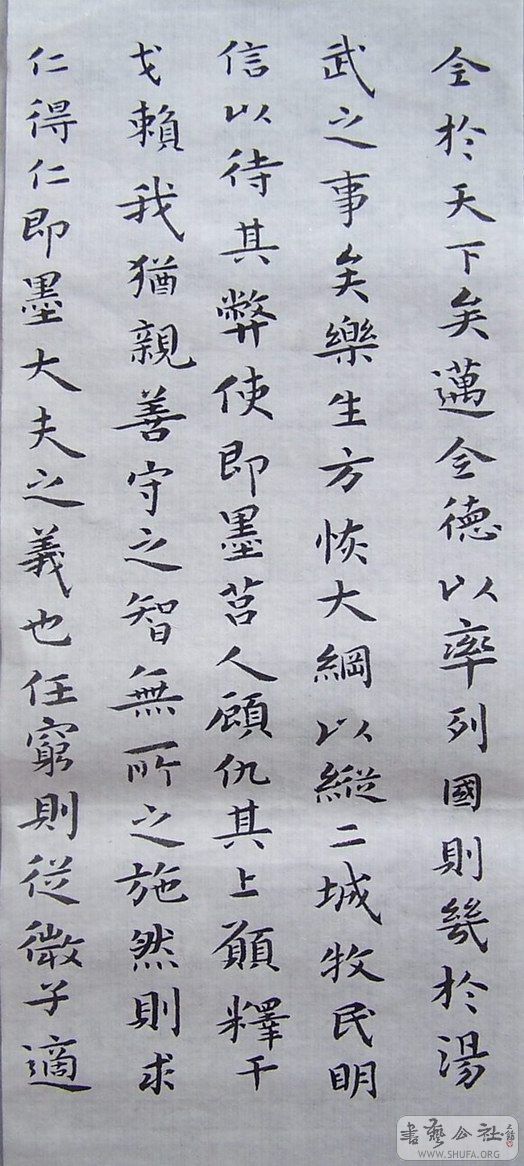 全於天下矣邁全德以率列國則幾於湯
武之事矣樂生方恢大綱以縱二城牧民明
信以待其弊使即墨莒人顧仇其上願釋干
戈賴我猶親善守之智無所之施然則求
仁得仁即墨大夫之義也任窮則從微子適
書藝公社
WWW.SHUFA.ORG